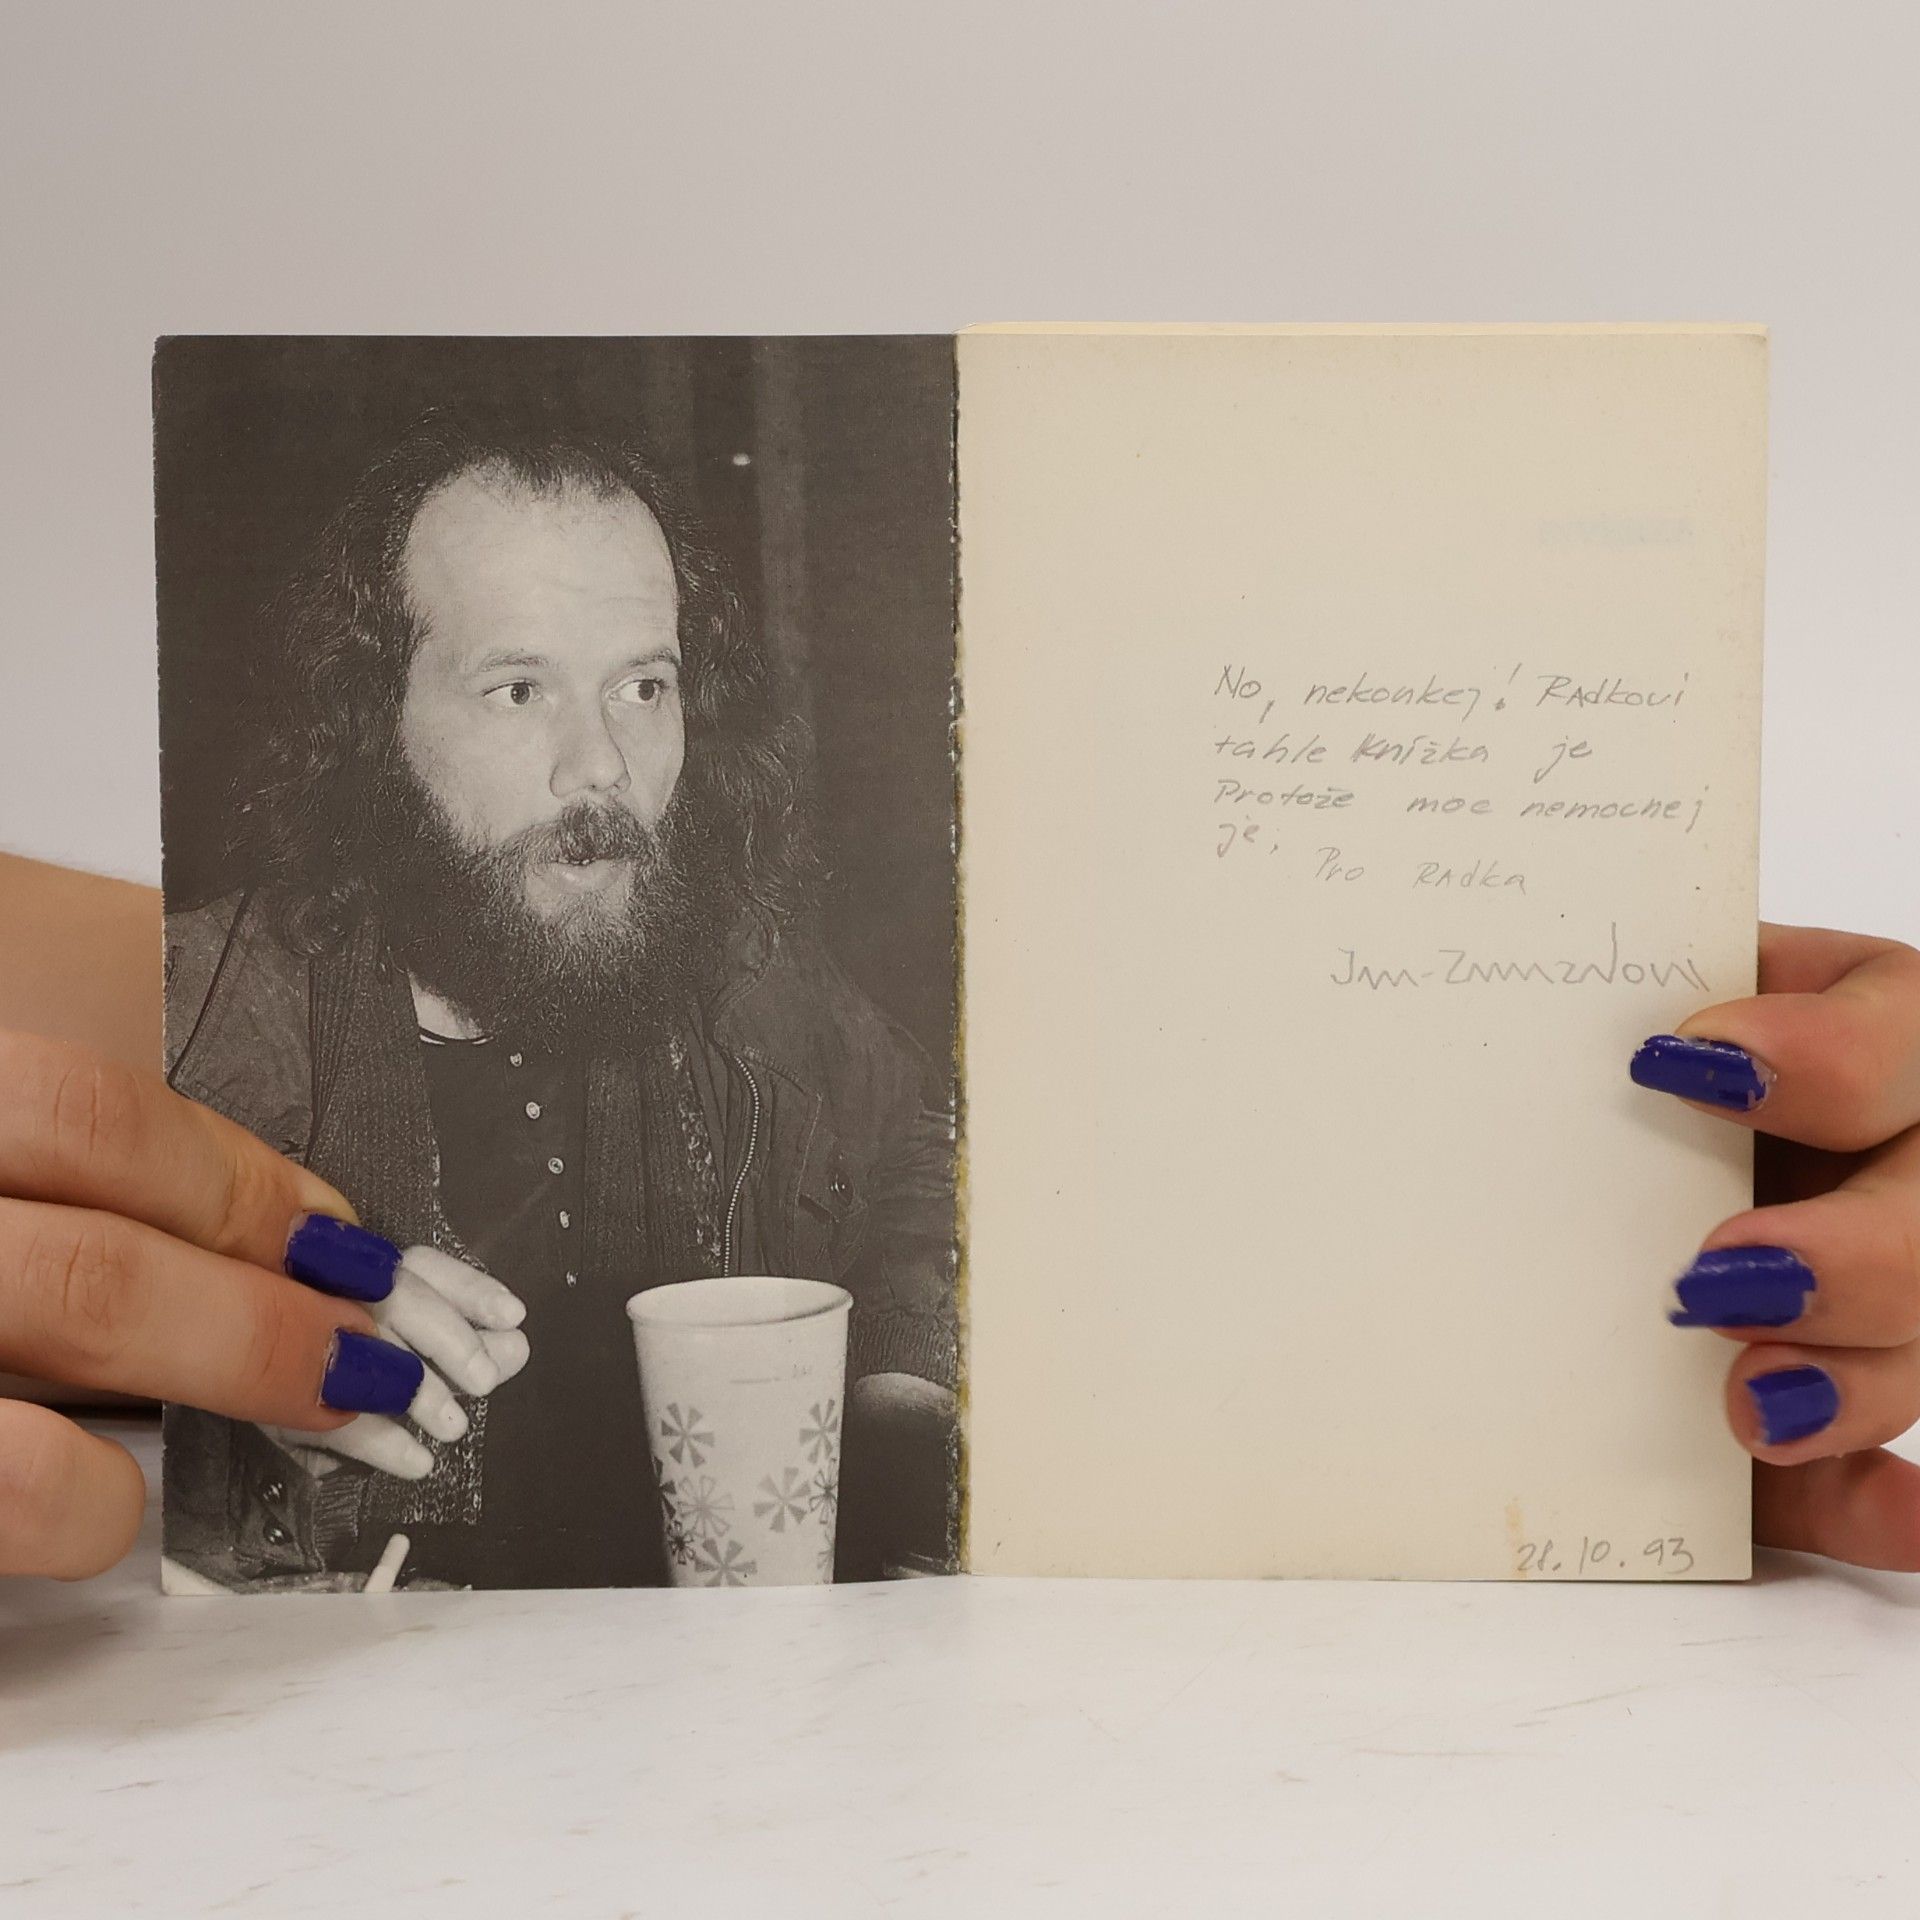 No, nekoukej! Radkovi
tahle knížka je
Protože moc nemocnej
je.
Pro Radka
28.10.93